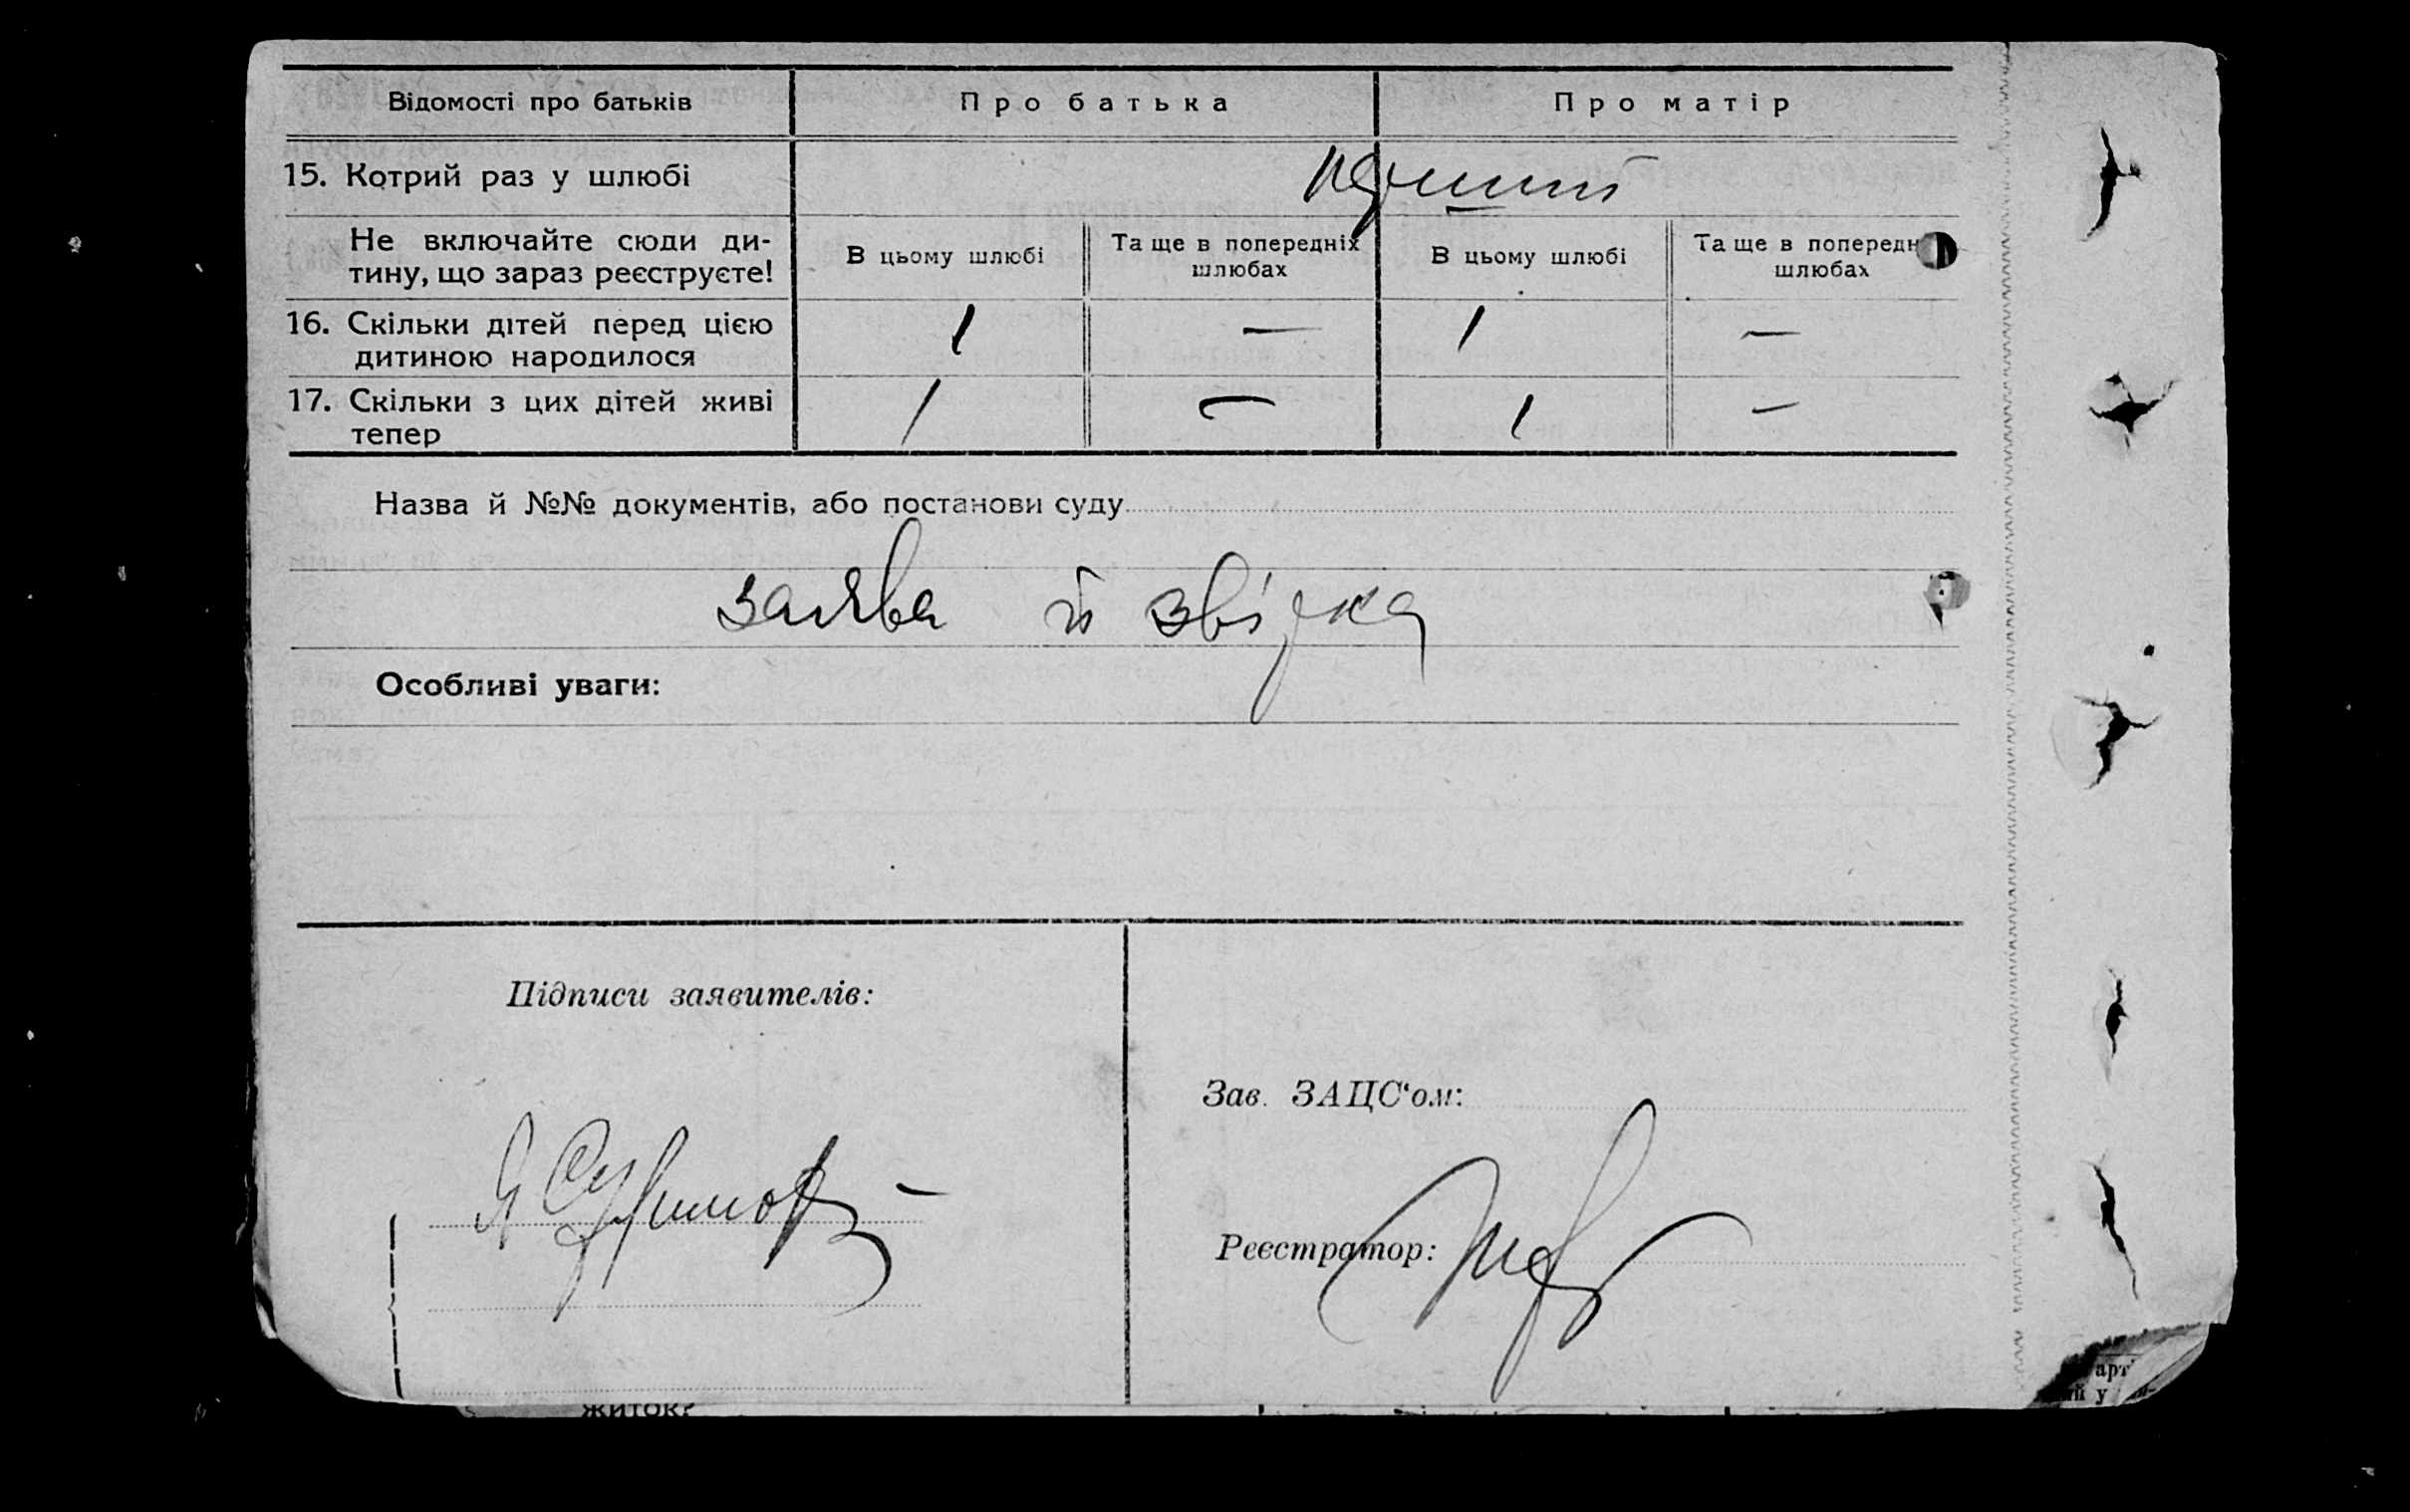 Відомості про батьків
Про батька
Про матір
15. Котрий раз у шлюбі
перший
Не включайте сюди ди-
тину, що зараз реєструєте!
В цьому шлюбі
Та ще в попередніх
шлюбах
В цьому шлюбі
Та ще в попередн
шлюбах
16. Скільки дітей перед цією
дитиною народилося
1 — 1 —
17. Скільки з цих дітей живі
тепер
1 — 1 —
Назва й №№ документів, або постанови суду
заява й звірка
Особливі уваги:
Підписи заявителів:
Зав. ЗАЦС‘ом:
Реєстратор:
житок?
арт
й у